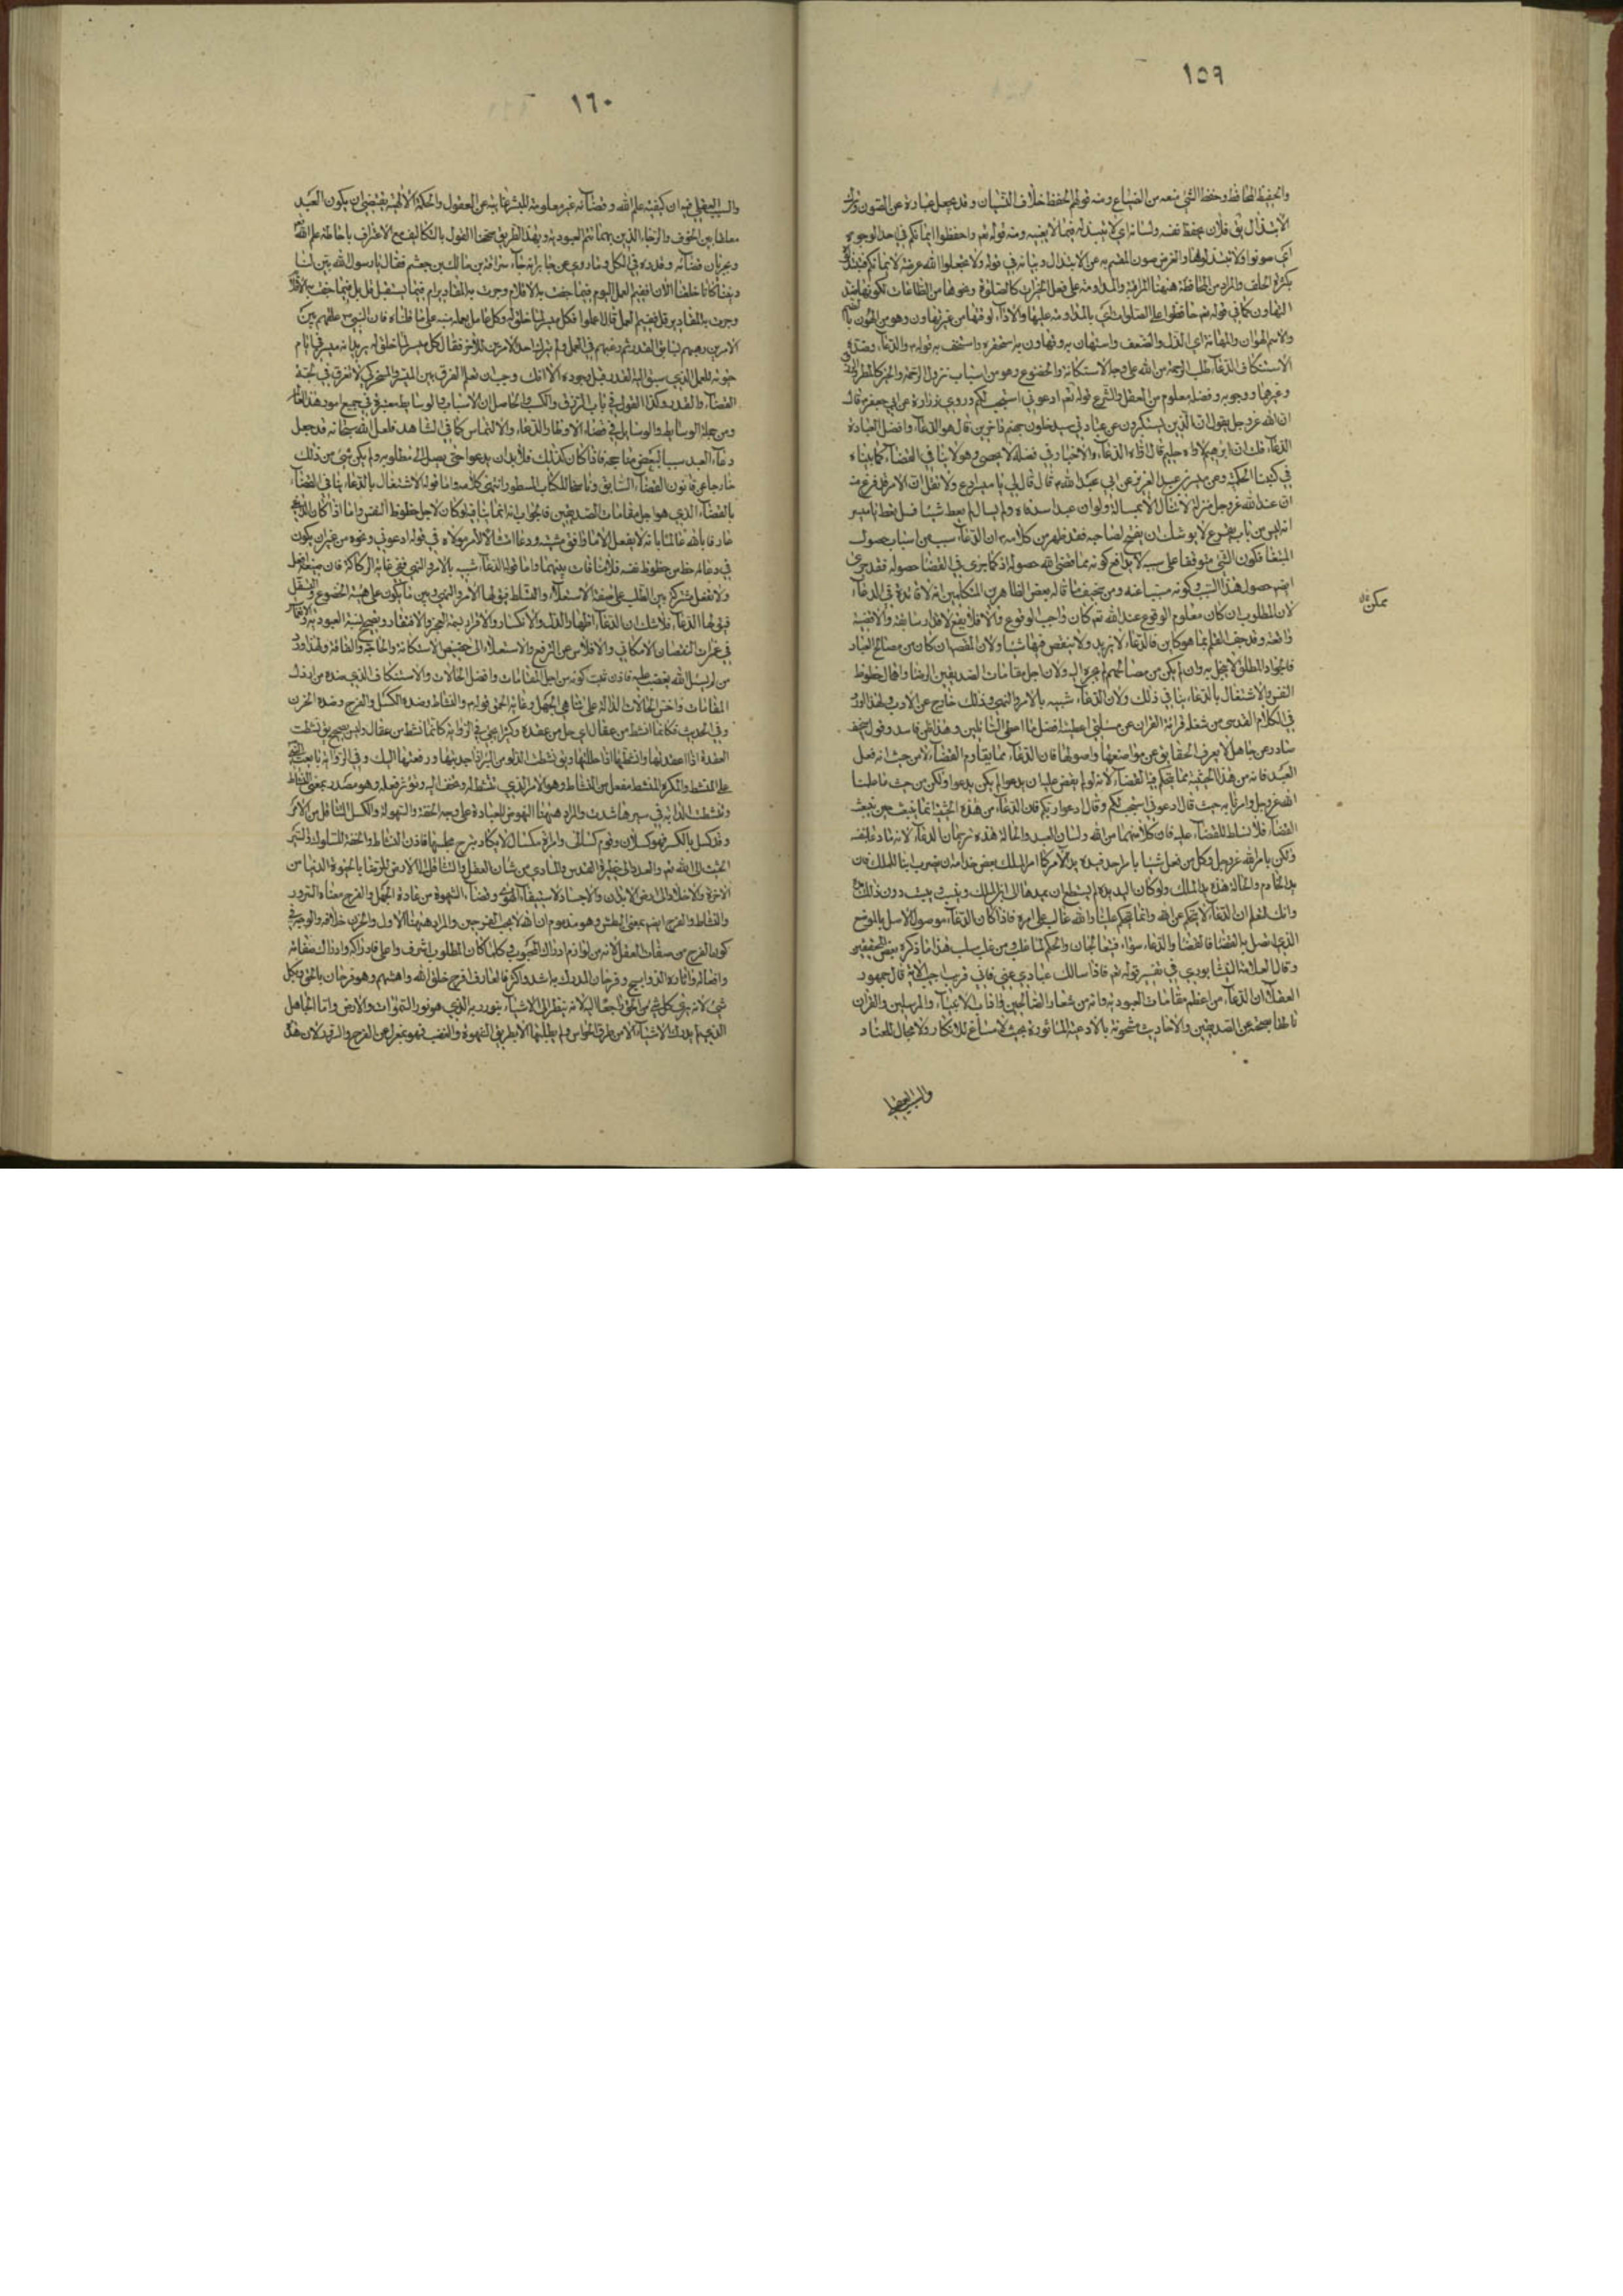 ١٥٩
والحفيظ المحافظ وحفظ الشئ منعه من الضياع ومنه قولهم الحفظ خلاف النسيان وقد يجعل عبارة عن الصون وترك
الابتذال يق فلان يحفظ نفسه ولسانه اي لا يبتذله فيما لا يعنيه ومنه قوله تعم واحفظوا ايمانكم في احد الوجوه
اي صونوا ولا تبتذلوها والغرض صون المقسم به عن الابتذال وبيانه في قوله ولا تجعلوا الله عرضة لايمانكم
بكثرة الحلف والمراد من المحافظة ههنا المراقبة والمداومة على فعل الخيرات كالصلوة ونحوها من الطاعات لكونها ضد
التهاون كما في قوله تعم حافظوا على الصلوات اي بالمداومة عليها والاداء لوقتها من غير تهاون وهو من الهون
والاسم الهوان والمهانة اي الذل والضعف واستهان به وتهاون به استحقره واستخف به قوله والدعاء وضده
الاستنكاف الدعاء طلب الرحمة من الله على وجه الاستكانة والخضوع وهو من اسباب نزول الرحمة والخير كالمطر
وغيرها ووجوبه وفضله معلوم من العقل والشرع قوله تعم ادعوني استجب لكم وروي زرارة عن ابي جعفر قال
ان الله عز وجل يقول ان الذين يستكبرون عن عبادتي سيدخلون جهنم داخرين قال هو الدعاء وافضل العبادة
الدعاء قلت ان ابرهيم لاواه حليم قال الاواه الدعاء والاخبار في فضله لا يحصى وهو لا ينافي القضاء كما بيناه
في كتبنا الحكمية وعن ميسر بن عبد العزيز عن ابي عبد الله قال قال لي يا ميسر ادع ولا تقل ان الامر قد فرغ منه
ان عند الله عز وجل منزلة لا تنال الا بمسألة ولو ان عبدا سد فاه ولم يسال لم يعط شيئا فسل تعط يا ميسر
انه ليس من باب يقرع الا يوشك ان يفتح لصاحبه فقد ظهر من كلامه ان الدعاء سبب من اسباب حصول
المبتغا فكون الشئ متوقفا على سبب لا يدافع كونه مما قضى الله حصوله اذ كما جرى في القضا حصوله فقد جرى
ايضم حصول هذا السبب وكونه مسببا عنه ومن سخيف ما قاله بعض الظاهريين المتكلمين انه لا فائدة في الدعاء
لان المطلوب ان كان معلوم الوقوع عند الله تعم كان واجب الوقوع والا فلا يقع لاقدار سابقة والاقضية
واقعة وقد جف القلم بما هو كاين فالدعاء لا يزيد ولا ينقص فيها شيئا ولان المقصد ان كان من مصالح العباد
فالجواد المطلق لا يبخل به وان لم يكن من مصالحهم لم يجز طلبه ولان اجل مقامات الصديقين الرضا واهمال حظوظ
النفس والاشتغال بالدعاء ينافي ذلك ولان الدعاء شبيه بالامر والنهي وذلك خارج عن الادب ولهذا ورد
في الكلام القدسي من شغله قراءة القران عن مسئلتي اعطيته افضل ما اعطي السائلين وهذا ظن فاسد وقول سخيف
صادر عن جاهل لا يعرف الحقايق عن مواضعها واصولها فان الدعاء مما يقاوم القضاء لا من حيث انه فعل
العبد فانه من هذه الحيثية مما يتحكم فيه القضاء لانه لو لم يقض عليه ان يدعو لم يكن يدعو ولكن من حيث ما علمنا
الله عز وجل وامرنا به حيث قال ادعوني استجب لكم وقال ادعوا ربكم فان الدعاء من هذه الحيثية انما ينبعث من حيث ينبعث
القضاء فلا تسلط للقضاء عليه فان كلا منهما من الله ولسان العبد والحالة هذه ترجمان الدعاء لانه ما دعا بنفسه
ولكن بامر الله عز وجل وكل من فعل شيئا بامر احد فيده يد الآمر كما امر الملك بعض خدامه ان يضرب ابنا للملك فان
يد الخادم والحالة هذه يد الملك ولو كان اليد يده لم يستطع ان يمدها الى ابن الملك
وانك لتعلم ان الدعاء لا يتحكم عن الله وانما يتحكم علينا والله غالب على امره فاذا كان الدعاء موصول الاصل بالموضع
الذي اتصل به القضا فالقضا والدعاء سواء فيتعالجان والحكم لما غلب ومن غلب سلب هذا ما ذكره بعض المحققين
وقال العلامة النيشابوري في تفسير قوله تعم فاذا سالك عبادي عني فاني قريب اجيب الاية قال جمهور
العقلا ان الدعاء من اعظم مقامات العبودية وانه من شعار الصالحين وآداب الانبياء والمرسلين والقران
ناطق بصحته عن الصديقين والاحاديث مشحونة بالادعية الماثورة بحيث لا مساغ للانكار ولا مجال للعناد
والسبب العقلي
ممكن
١٦٠
والسبب العقلي فيه ان كيفية علم الله وقضائه غير معلومة للبشر غايبة عن العقول والحكمة الالهية يقتضي ان يكون العبد
معلقا بين الخوف والرجاء الذين بهما تتم العبودية وبهذا الطريق صححنا القول بالتكاليف مع الاعتراف باحاطة علم الله
وجريان قضائه وقدره في الكل وما روي عن جابر انه جاء سراقة بن مالك بن جعشم فقال يا رسول الله بين لنا
ديننا كانا خلقنا الان ففيم العمل اليوم فيما جفت به الاقلام وجرت به المقادير ام فيما يستقبل قال بل فيما جفت به الاقلام
وجرت به المقادير قال ففيم العمل قال اعملوا فكل ميسر لما خلق له وكل عامل بعمله منبه على ما قلناه فان النبي ص علقهم بين
الامرين رهبهم بسابق القدر ثم رغبهم في العمل ولم يترك احد الامرين للاخر فقال كل ميسر لما خلق له يريد انه ميسر في ايام
حيوته للعمل الذي سبق اليه القدر قبل وجوده الا انك يجب ان تعلم الفرق بين الميسر والمسخر كي لا تغرق في لجة
القضاء والقدر وكذا القول في باب الرزق والكسب والحاصل ان الاسباب والوسايط معتبرة في جميع امور هذا العالم
ومن جملة الوسايط والوسايل في قضاء الاوطار الدعاء والالتماس كما في الشاهد فلعل الله سبحانه قد جعل
دعاء العبد سببا لبعض مناجحه فاذا كان كذلك فلا بد ان يدعو حتى يصل الى مطلوبه ولم يكن شئ من ذلك
خارجا عن قانون القضاء السابق وناسخا للكتاب المسطور انتهى كلامه واما قوله الاشتغال بالدعاء ينافي القضاء
بالقضاء الذي هو اجل مقامات الصديقين فالجواب انه انما ينافيه لو كان لاجل حظوظ النفس واما اذا كان الداعي
عارفا بالله عالما بانه لا يفعل الا ما وافق مشيته ودعا امتثالا لامر مولاه في قوله ادعوني ونحوه من غير ان يكون
في دعائه حظ من حظوظ نفسه فلا منافاة بينهما واما قوله الدعاء شبيه بالامر والنهي ففي غاية الركاكة فان صيغة افعل
ولا تفعل مشتركة بين الطلب على صفة الاستعلاء والتسلط فيق لها الامر والنهي وبين ما يكون على هيئة الخضوع والتسفل
فيق لها الدعاء فلا شك ان الدعاء اظهار الذل والانكسار والاقرار بسمة العجز والافتقار وتصحيح نسبة العبودية
في غمرات النقصان الامكاني والافلاس عن الترفع والاستعلاء الى حضيض الاستكانة والحاجة والفاقة ولهذا ورد
من لم يسئل الله يغضب عليه فاذن ثبت كونه من اجل المقامات وافضل الحالات والاستنكاف الذي ضده من ارذل
المقامات واخس الحالات الدالة على تناهي الجهل وغاية الحمق قوله والنشاط وضده الكسل والفرح وضده الحزن
وفي الحديث فكانما انشط من عقال اي حل من عقده وكثيرا يجئ في الرواية كانما نشط من عقال وليس بصحيح يق نشطت
العقدة اذا اعقدتها وانشطتها اذا حللتها ويق نشطت الدلو من البئر اذا جذبتها ورفعتها اليك وفي الرواية بايعت
على المنشط والمكره المنشط مفعل من النشاط وهو الامر الذي تنشط له وتخف اليه وتوثر فعله وهو مصدر بمعنى النشاط
ونشطت الدابة في سيرها شدت والمراد ههنا النهوض للعبادة على وجه الخفة والسهولة والكسل التثاقل من الامر
وقد كسل بالكسر فهو كسلان وقوم كسالى وامراة مكسال لا يكاد تبرح مجلسها فاذن النشاط والخفة للسلوك والسير
الحثيث الى الله تعم والعروج الى حظيرة القدس والتسارع من شان العقل والتثاقل الى الارض للرضا بالحيوة الدنيا من
الاخرة والاخلاد الى ارض الابدان والاجساد لاستيفاء الهوى وقضاء الشهوة من عادة الجهل والفرح معناه السرور
والنشاط والفرح ايضم بمعنى البطر وهو مذموم ان الله لا يحب الفرحين والمراد ههنا الاول والحزن خلافه والوجه في
كون الفرح من صفات العقل لانه من لوازم ادراك المحبوب وكلما كان المطلوب اشرف واعلى قادراكه وادراك صفاته
وافعاله واثاره الذ وابهج وفرحان المدرك به اشد واكثر فالعارف افرح خلق الله واهشهم وهو فرحان بالحق وبكل
شئ لانه يرى كل شئ من الحق راجعا اليه لانه ينظر الى الاشياء بنور ربه الذي هو نور السموات والارض واما الجاهل
الذي لم يدرك الاشياء الا من طرق الحواس ولم يطلبها الا بطريق الشهوة والغضب فهو بمعزل عن الفرح والسرور لان هذه